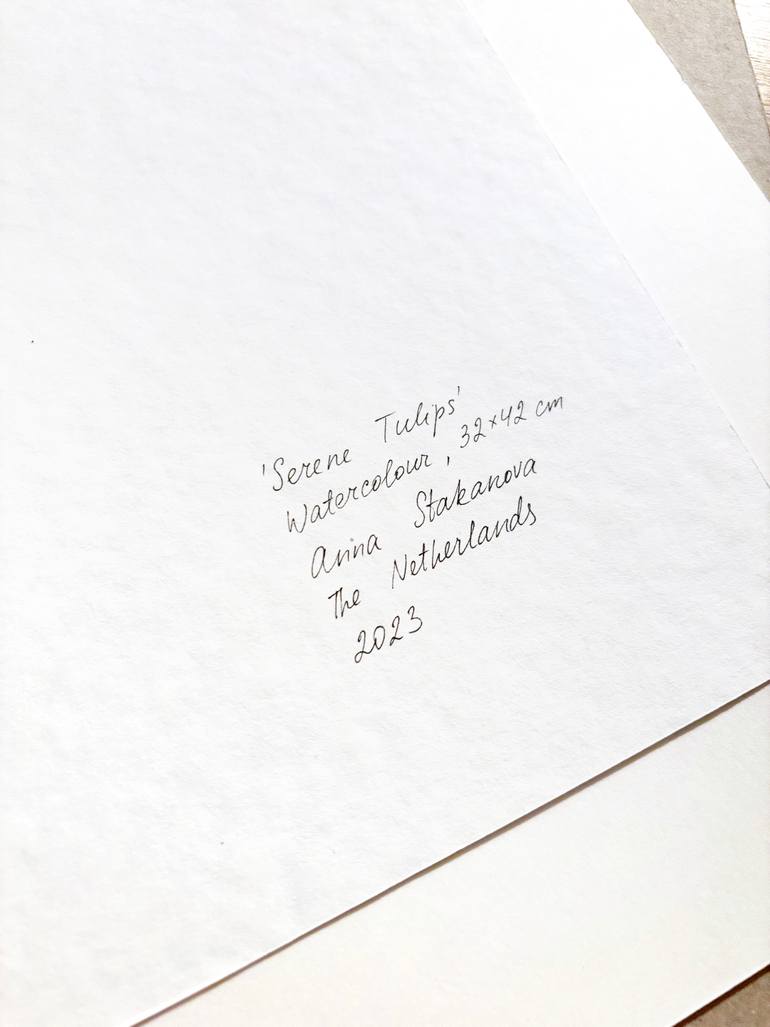 'Serene Tulips'
Watercolour, 32×42 cm
Anna Stakanova
The Netherlands
2023